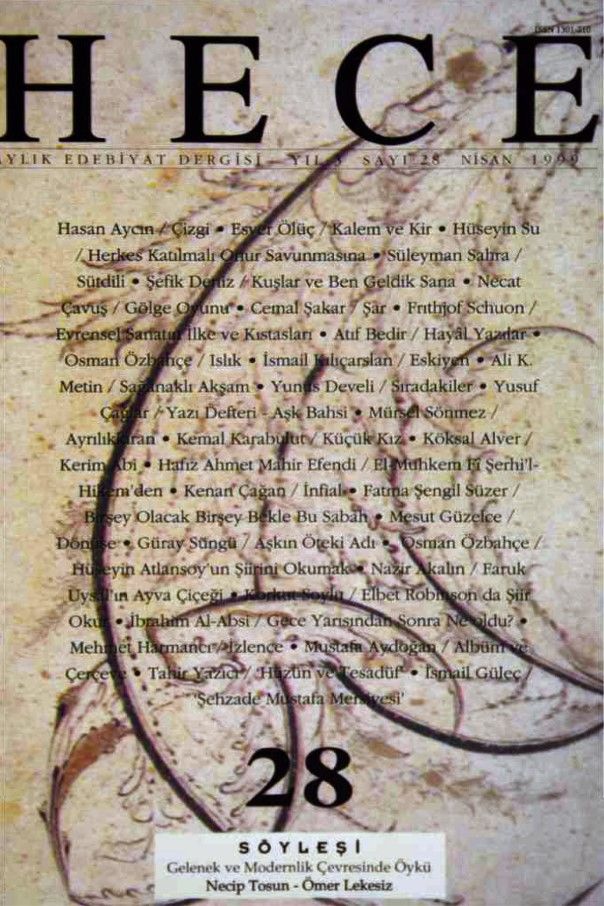 ISSN 1301-210
HECE
AYLIK EDEBİYAT DERGİSİ YIL 3 SAYI 28 NİSAN 1999
Hasan Aycın / Çizgi • Esver Ölüç / Kalem ve Kir • Hüseyin Su
/ Herkes Katılmalı Onur Savunmasına • Süleyman Sahra /
Sütdili • Şefik Deniz / Kuşlar ve Ben Geldik Sana • Necat
Çavuş / Gölge Oyunu • Cemal Şakar / Şar • Frıthjof Schuon /
Evrensel Sanatın İlke ve Kıstasları • Atıf Bedir / Hayâl Yazılar •
Osman Özbahçe / Islık • İsmail Kılıçarslan / Eskiyen • Ali K.
Metin / Sağanaklı Akşam • Yunus Develi / Sıradakiler • Yusuf
Çağlar / Yazı Defteri - Aşk Bahsi • Mürsel Sönmez /
Ayrılıkkıran • Kemal Karabulut / Küçük Kız • Köksal Alver /
Kerim Abi • Hafız Ahmet Mahir Efendi / El-Muhkem Fî Şerhi'l-
Hikem'den • Kenan Çağan / İnfial • Fatma Şengil Süzer /
Birşey Olacak Birşey Bekle Bu Sabah • Mesut Güzelce /
Dönüşe • Güray Süngü / Aşkın Öteki Adı • Osman Özbahçe /
Hüseyin Atlansoy'un Şiirini Okumak • Nazir Akalın / Faruk
Uysal'ın Ayva Çiçeği • Korkut Soylu / Elbet Robinson da Şiir
Okur • İbrahim Al-Absi / Gece Yarısından Sonra Ne oldu? •
Mehmet Harmancı / İzlence • Mustafa Aydoğan / Albüm ve
Çerçeve • Tahir Yazıcı / 'Hüzün ve Tesadüf' • İsmail Güleç /
'Şehzade Mustafa Mersiyesi'
28
SÖYLEŞİ
Gelenek ve Modernlik Çevresinde Öykü
Necip Tosun - Ömer Lekesiz